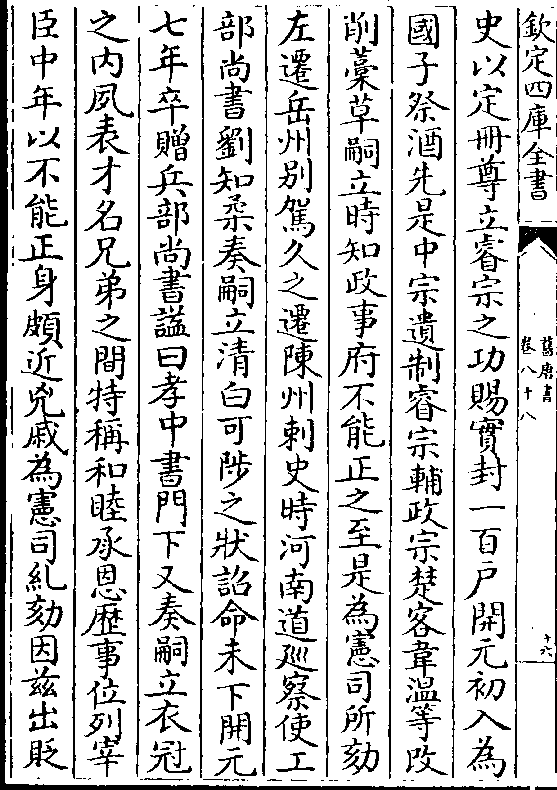 欽定四庫全書
舊唐書
卷八十八
十六
史以定冊尊立睿宗之功賜實封一百戶開元初入為
國子祭酒先是中宗遺制睿宗輔政宗楚客韋溫等改
削藁草嗣立時知政事府不能正之至是為憲司所劾
左遷岳州别駕久之遷陳州刺史時河南道廵察使工
部尚書劉知柔奏嗣立清白可陟之狀詔命未下開元
七年卒贈兵部尚書謚曰孝中書門下又奏嗣立衣冠
之内夙表才名兄弟之間特稱和睦承恩歴事位列宰
臣中年以不能正身頗近兇戚為憲司糺劾因兹出貶